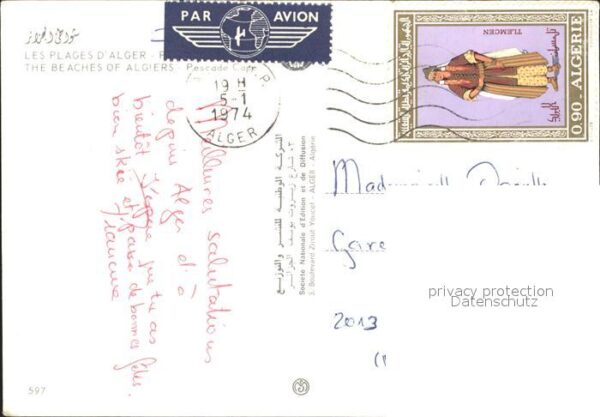 شواطئ الجزائر
LES PLAGES D'ALGER - P
THE BEACHES OF ALGIERS - Pescade Cap
PAR AVION
19 H
5-1
1974
ALGER
TLEMCEN
0.90 ALGERIE
Meilleures salutations
depuis Alger d'ô
bientôt J'espère que tu as
bien skié et passé de bonnes fêtes.
Francine
الشركة الوطنية للنشر والتوزيع
٣، شارع زيروت يوسف الجزائر
Société Nationale d'Edition et de Diffusion
3, Boulevard Zirout Youcef - ALGER - Algérie
Mademoiselle
Gare
2013
privacy protection
Datenschutz
597